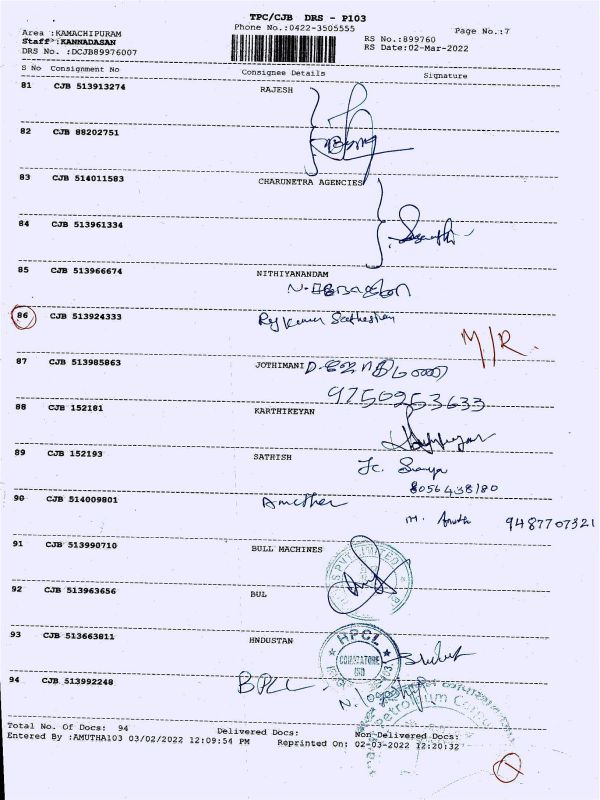 TPC/CJB DRS - P103
Phone No.:0422-3505555
Page No.:7
Area :KAMACHIPURAM
Staff :KANNADASAN
DRS No. :DCJB89976007
RS No.:899760
RS Date:02-Mar-2022
S No Consignment No Consignee Details Signature
81 CJB 513913274 RAJESH
82 CJB 88202751
83 CJB 514011583 CHARUNETRA AGENCIES
84 CJB 513961334
85 CJB 513966674 NITHIYANANDAM
86 CJB 513924333 Raj Kumar
M/R.
87 CJB 513985863 JOTHIMANI
9750253633
88 CJB 152181 KARTHIKEYAN
89 CJB 152193 SATHISH
8056438180
90 CJB 514009801
M. Amutha 9487707321
91 CJB 513990710 BULL MACHINES
PVT LIMITED
92 CJB 513963656 BUL
93 CJB 513663811 HNDUSTAN
HPCL
COIMBATORE
94 CJB 513992248 BPCL
Petroleum
Total No. Of Docs: 94 Delivered Docs: Non-Delivered Docs:
Entered By :AMUTHA103 03/02/2022 12:09:54 PM Reprinted On: 02-03-2022 12:20:32